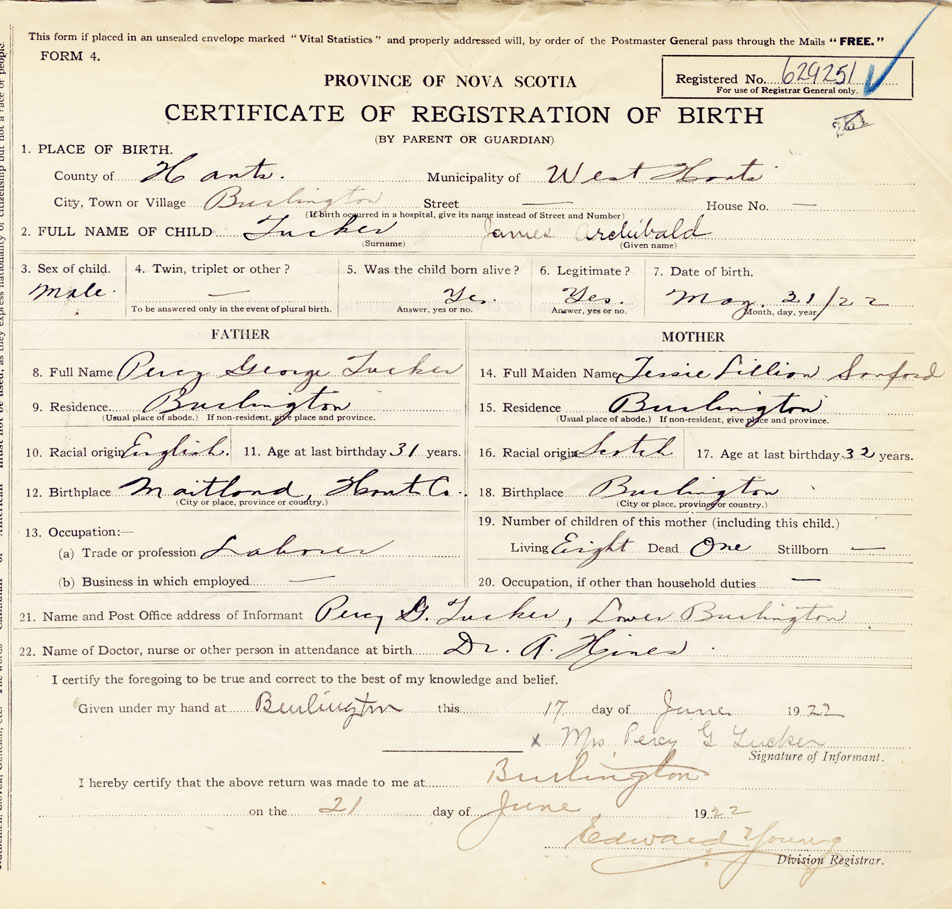 This form if placed in an unsealed envelope marked "Vital Statistics" and properly addressed will, by order of the Postmaster General pass through the Mails "FREE."
FORM 4.
Registered No. 629251
For use of Registrar General only.
PROVINCE OF NOVA SCOTIA
CERTIFICATE OF REGISTRATION OF BIRTH
(BY PARENT OR GUARDIAN)
1. PLACE OF BIRTH.
County of Hants. Municipality of West Hants
City, Town or Village Burlington Street — House No. —
(If birth occurred in a hospital, give its name instead of Street and Number)
2. FULL NAME OF CHILD Tucker James Archibald
(Surname) (Given name)
3. Sex of child. 4. Twin, triplet or other? 5. Was the child born alive? 6. Legitimate? 7. Date of birth.
Male. — Yes. Yes. May. 31/22
To be answered only in the event of plural birth. Answer, yes or no. Answer, yes or no. Month, day, year
FATHER MOTHER
8. Full Name Percy George Tucker 14. Full Maiden Name Jessie Lillian Sanford
9. Residence Burlington 15. Residence Burlington
(Usual place of abode.) If non-resident, give place and province. (Usual place of abode.) If non-resident, give place and province.
10. Racial origin English. 11. Age at last birthday 31 years. 16. Racial origin Scotch 17. Age at last birthday 32 years.
12. Birthplace Maitland, Hants Co. 18. Birthplace Burlington
(City or place, province or country.) (City or place, province or country.)
13. Occupation:— 19. Number of children of this mother (including this child.)
(a) Trade or profession Laborer Living Eight Dead One Stillborn —
(b) Business in which employed — 20. Occupation, if other than household duties —
21. Name and Post Office address of Informant Percy G. Tucker, Lower Burlington
22. Name of Doctor, nurse or other person in attendance at birth Dr. A. Hines
I certify the foregoing to be true and correct to the best of my knowledge and belief.
Given under my hand at Burlington this 17 day of June 1922
x Mrs Percy G Tucker
Signature of Informant.
I hereby certify that the above return was made to me at Burlington
on the 21 day of June 1922
Edward Young
Division Registrar.